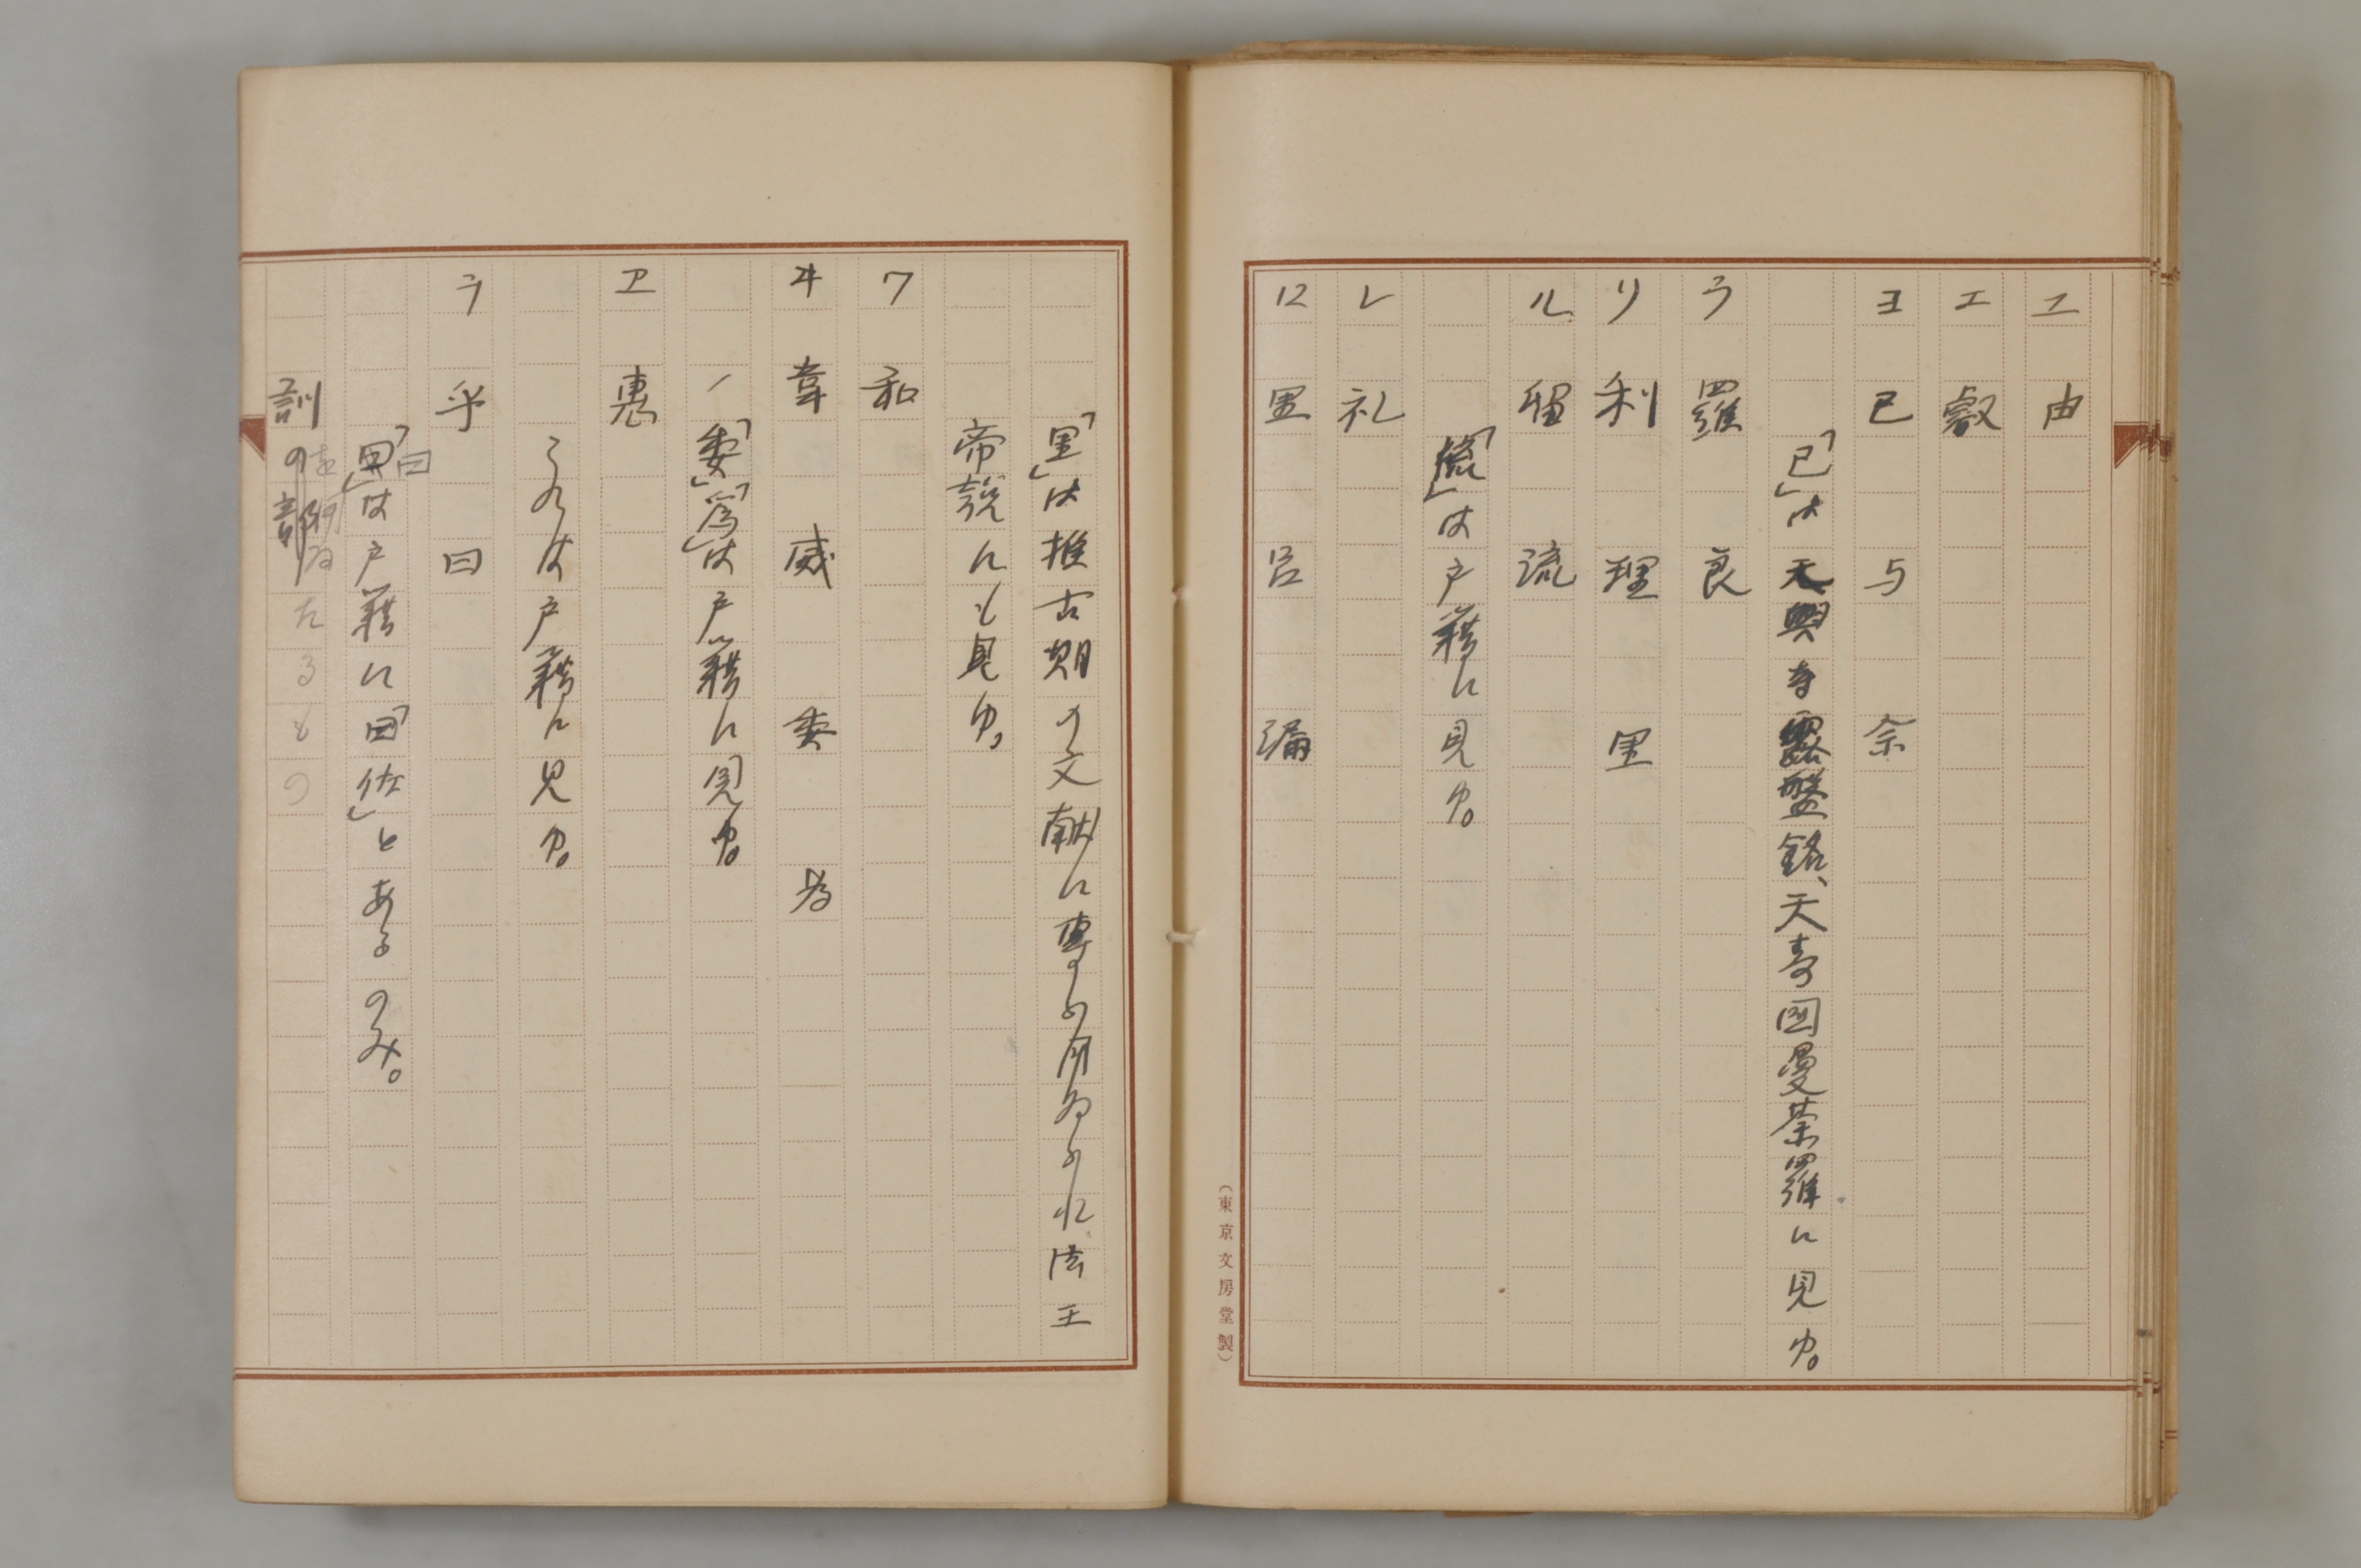 ユ 由
エ 叡
ヨ 已 与 余
「已」は元興寺露盤銘、天寿国曼荼羅に見ゆ。
ラ 羅 良
リ 利 理 里
ル 留 流
「流」は戸籍に見ゆ。
レ 礼
ロ 里 呂 漏
(東京文房堂製)
「里」は推古期の文献に専ら用ゐられ法王
帝説にも見ゆ。
ワ 和
ヰ 韋 威 委 為
「委」「為」は戸籍に見ゆ。
ヱ 恵
これは戸籍に見ゆ。
ヲ 乎 曰
「曰」は戸籍に「曰佐」とあるのみ。
訓の部
を用ゐたるもの